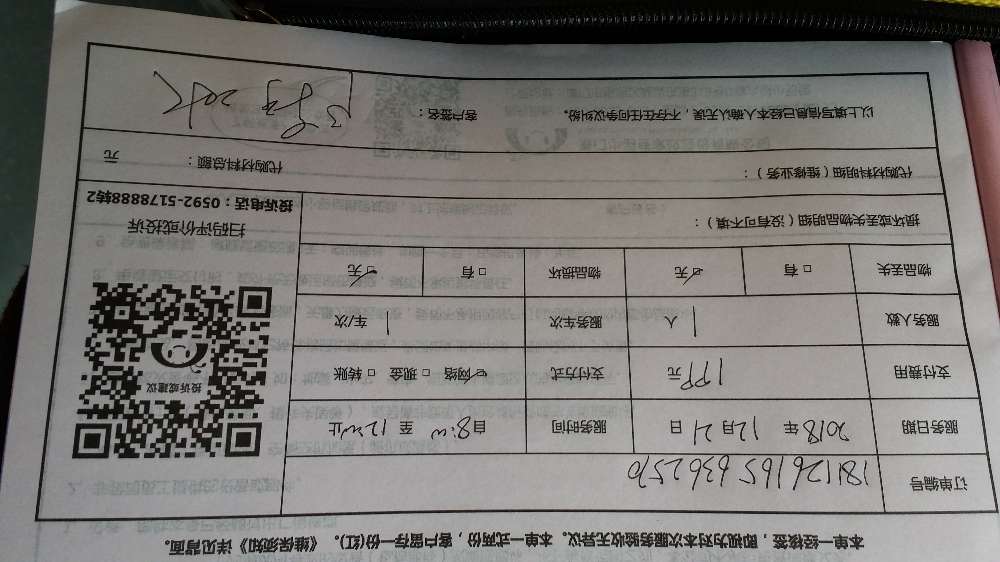 本单一经核签，即视为对本次服务验收无异议。本单一式两份，客户留存一份(红)。《维保须知》详见背面。
订单编号 1811261656362570
服务日期 2018年 12月 21日 服务时间 自8:00 至 12:00止
支付费用 199元 支付方式 ☑网络 □现金 □转账
服务人数 1人 服务车次 1车次
物品丢失 □有 ☑无 物品损坏 □有 ☑无
投诉或建议
扫码评价或投诉
投诉电话：0592-5178888转2
损坏或丢失物品明细（没有可不填）：
代购材料明细（维修业务）： 代购材料总额： 元
以上填写信息已经本人确认无误，不存在任何争议纠纷。 客户签名：